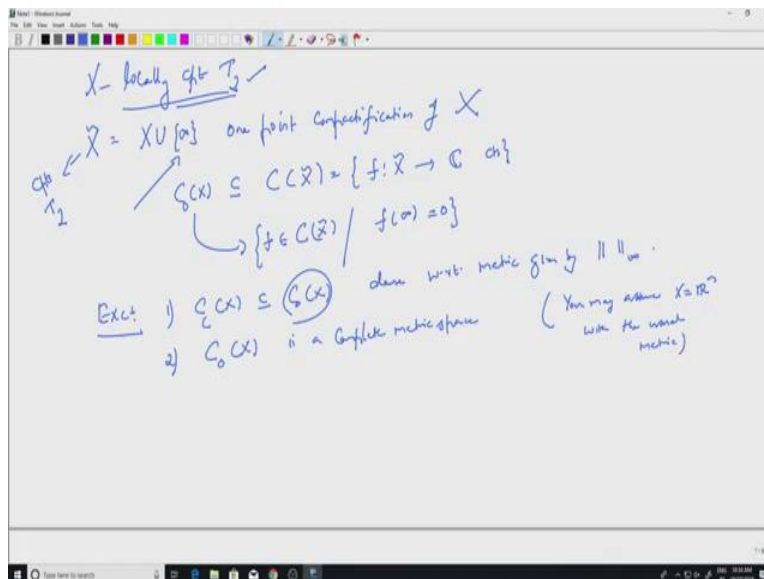 Note1 - Windows Journal
File Edit View Insert Actions Tools Help
X - locally cpt T₂ ✓
X̃ = X ∪ {∞} one point compactification of X
cpt T₂
C₀(X) ⊆ C(X̃) = { f : X̃ → ℂ cts }
{ f ∈ C(X̃) / f(∞) = 0 }
Exc: 1) C_c(X) ⊆ C₀(X) dense w.r.t. metric given by ‖ ‖_∞ .
2) C₀(X) is a complete metric space ( You may assume X = ℝⁿ
with the usual
metric )
Type here to search